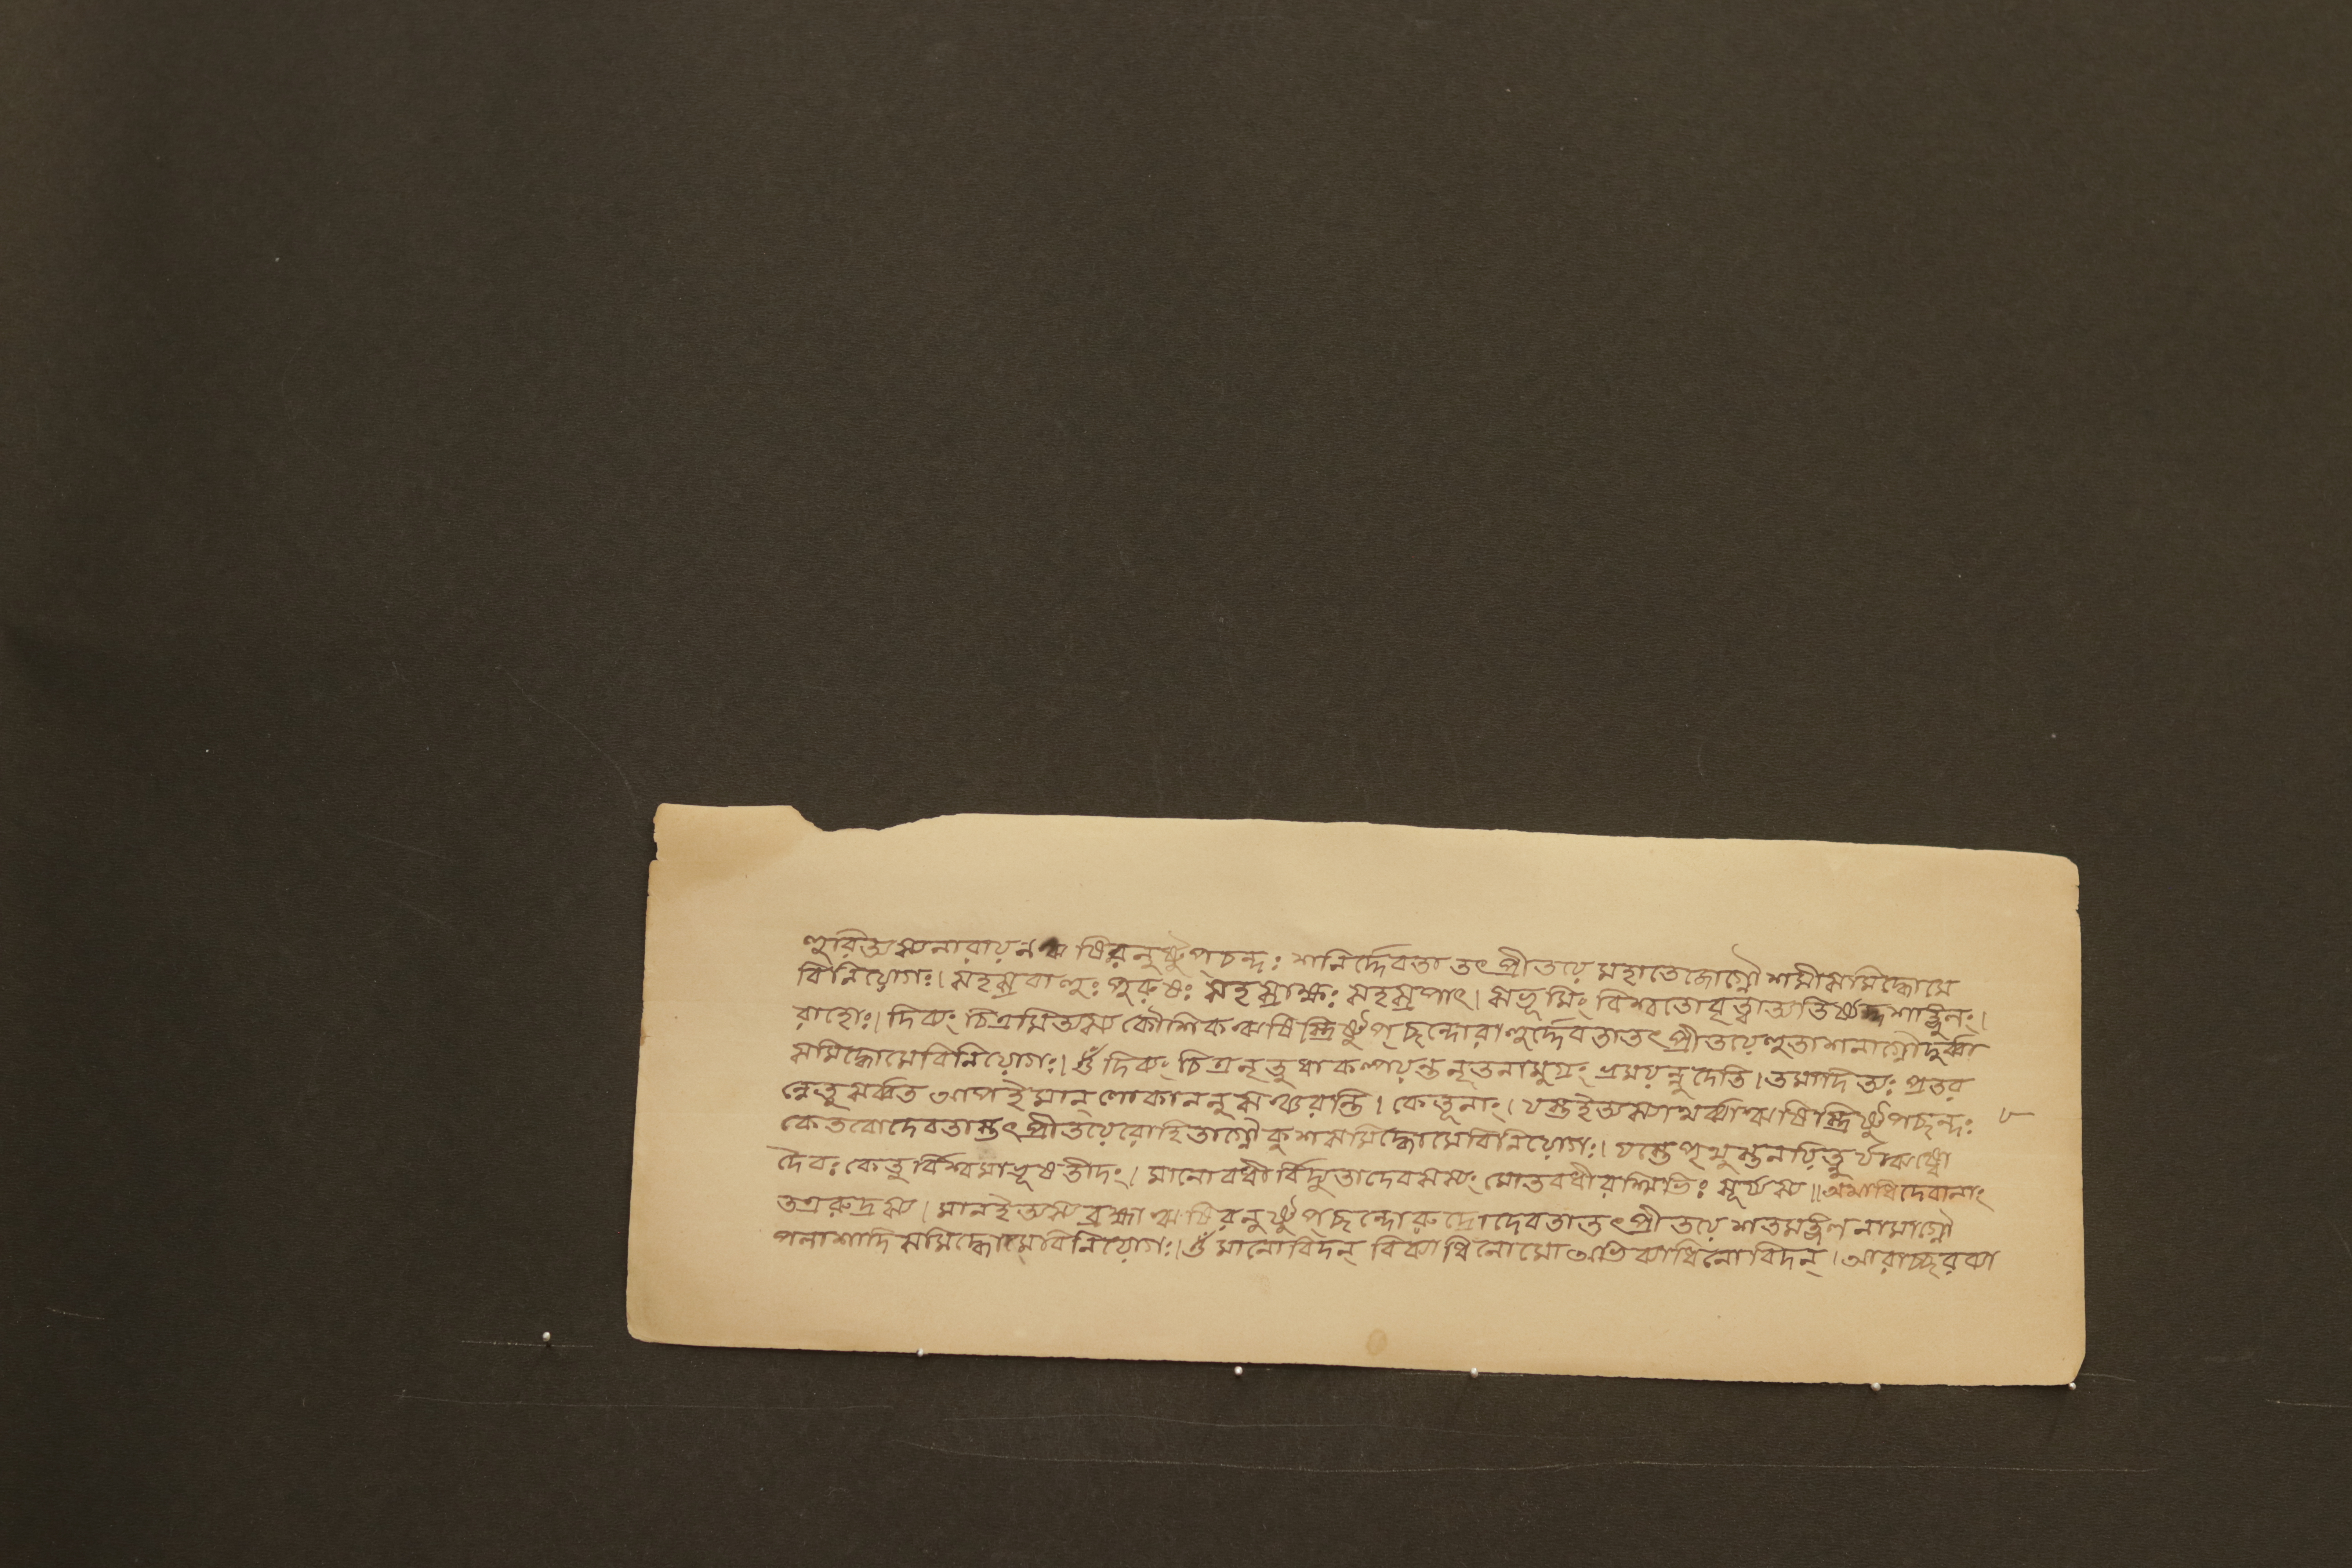 হুরিত্যস্য নারায়ন ঋষিরনুষ্টুপ্চন্দঃ শনির্দ্দেবতা তৎপ্রীতয়ে মহাতেজোগ্নৌ শমীসমিদ্ধোমে
বিনিয়োগঃ। সহস্রবাহুঃ পুরুষঃ সহস্রাক্ষঃ সহস্রপাৎ। সভূমিং বিশ্বতোবৃত্বাঅতিষ্ঠদ্দশাঙ্গুলং।
রাহোঃ। দিব্যং চিত্রমিত্যস্য কৌশিক ঋষিস্ত্রিষ্টুপ্ছন্দোরাহুর্দ্দেবতাতৎপ্রীতয়েহুতাশনাগ্নৌদুর্ব্বা
সমিদ্ধোমেবিনিয়োগঃ। ওঁ দিব্যং চিত্রনৃতুধাকল্পয়ন্তনৃতনামুগ্রং ভ্রময়ন্নুদেতি। তমাদিত্যঃ প্রতর
ন্নেতুসর্ব্বত আপইমান্ লোকাননুসঞ্চরন্তি। কেতূনাং। যস্তইত্যস্যাথর্ব্বাঋষিস্ত্রিষ্টুপছন্দঃ ৮
কেতবোদেবতাস্তৎপ্রীতয়েরোহিতাগ্নৌকুশসমিদ্ধোমেবিনিয়োগঃ। যস্তেপৃথুস্তনয়িত্নুর্যঋষ্বো
দৈবঃ কেতুর্বিশ্বমাভূষতীদং। মানোবধীর্বিদ্যুতাদেবসস্যং মোতবধীরশ্মিভিঃ সূর্য্যস্য॥ অথাধিদেবানাং
তত্ররুদ্রস্য। মানইত্যস্য ব্রহ্মা ঋষিরনুষ্টুপ্ছন্দোরুদ্রোদেবতাতৎপ্রীতয়ে শতমঙ্গলনামাগ্নৌ
পলাশাদি সমিদ্ধোমেবিনিয়োগঃ। ওঁ মানোবিদন্ বিব্যাধিনোমোঅভিব্যাধিনোবিদন্। আরাচ্ছরব্যা